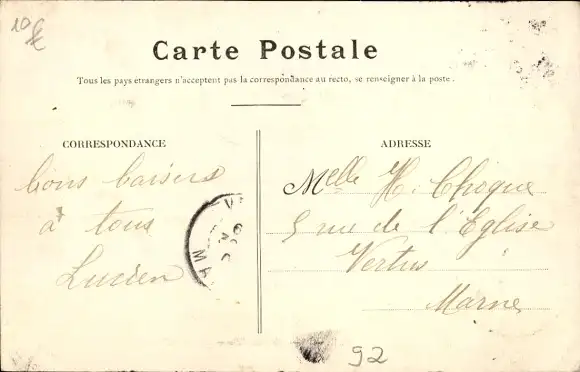 10 €
Carte Postale
Tous les pays étrangers n'acceptent pas la correspondance au recto, se renseigner à la poste.
CORRESPONDANCE
ADRESSE
bons baisers
à tous
Lucien
Melle H. Choque
5 rue de l'Eglise
Vertus
Marne
MA
92